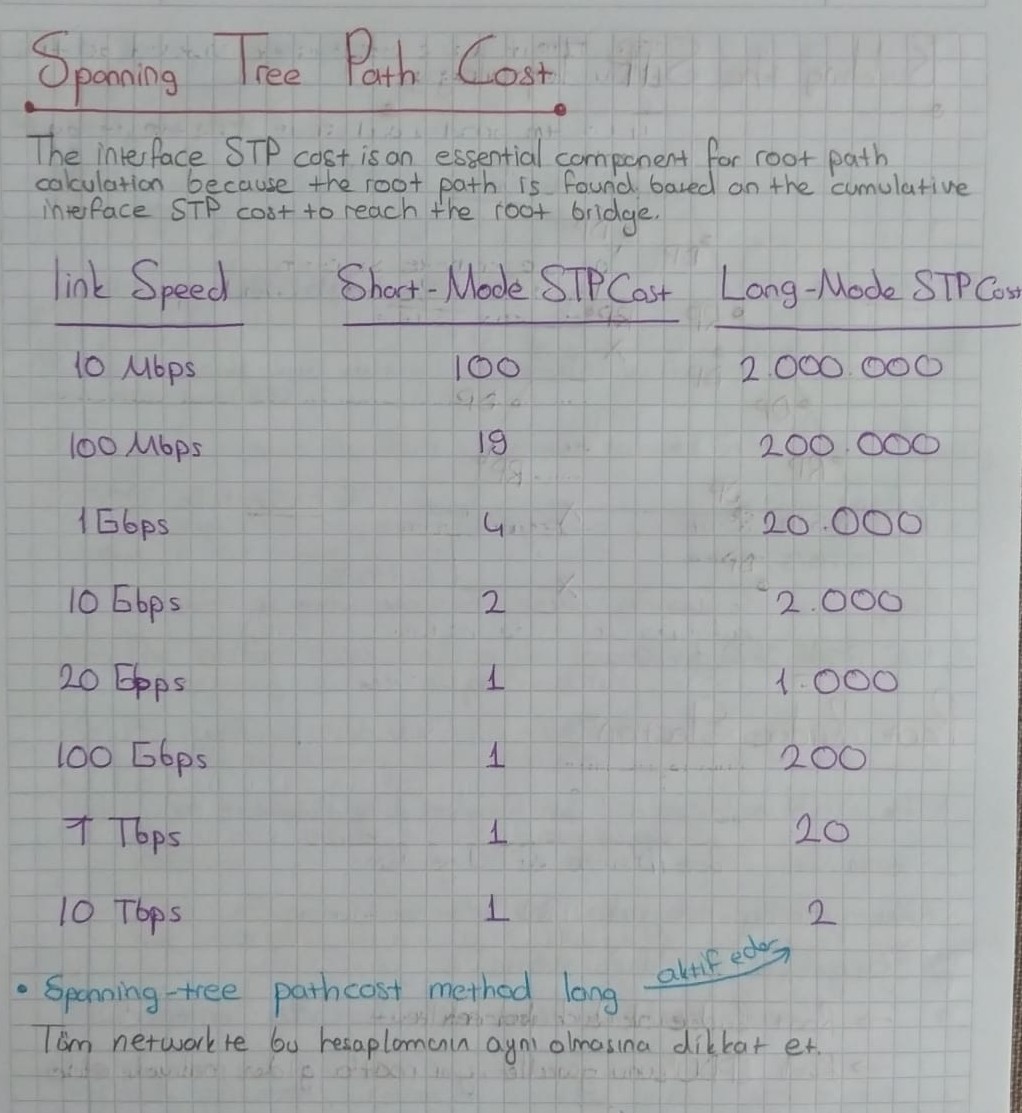 Spanning Tree Path Cost
The interface STP cost is an essential component for root path
calculation because the root path is found based on the cumulative
interface STP cost to reach the root bridge.
link Speed Short-Mode STP Cost Long-Mode STP Cost
10 Mbps 100 2.000.000
100 Mbps 19 200.000
1 Gbps 4 20.000
10 Gbps 2 2.000
20 Gbps 1 1.000
100 Gbps 1 200
1 Tbps 1 20
10 Tbps 1 2
• Spanning-tree pathcost method long aktif eder
Tüm networkte bu hesaplamanın aynı olmasına dikkat et.